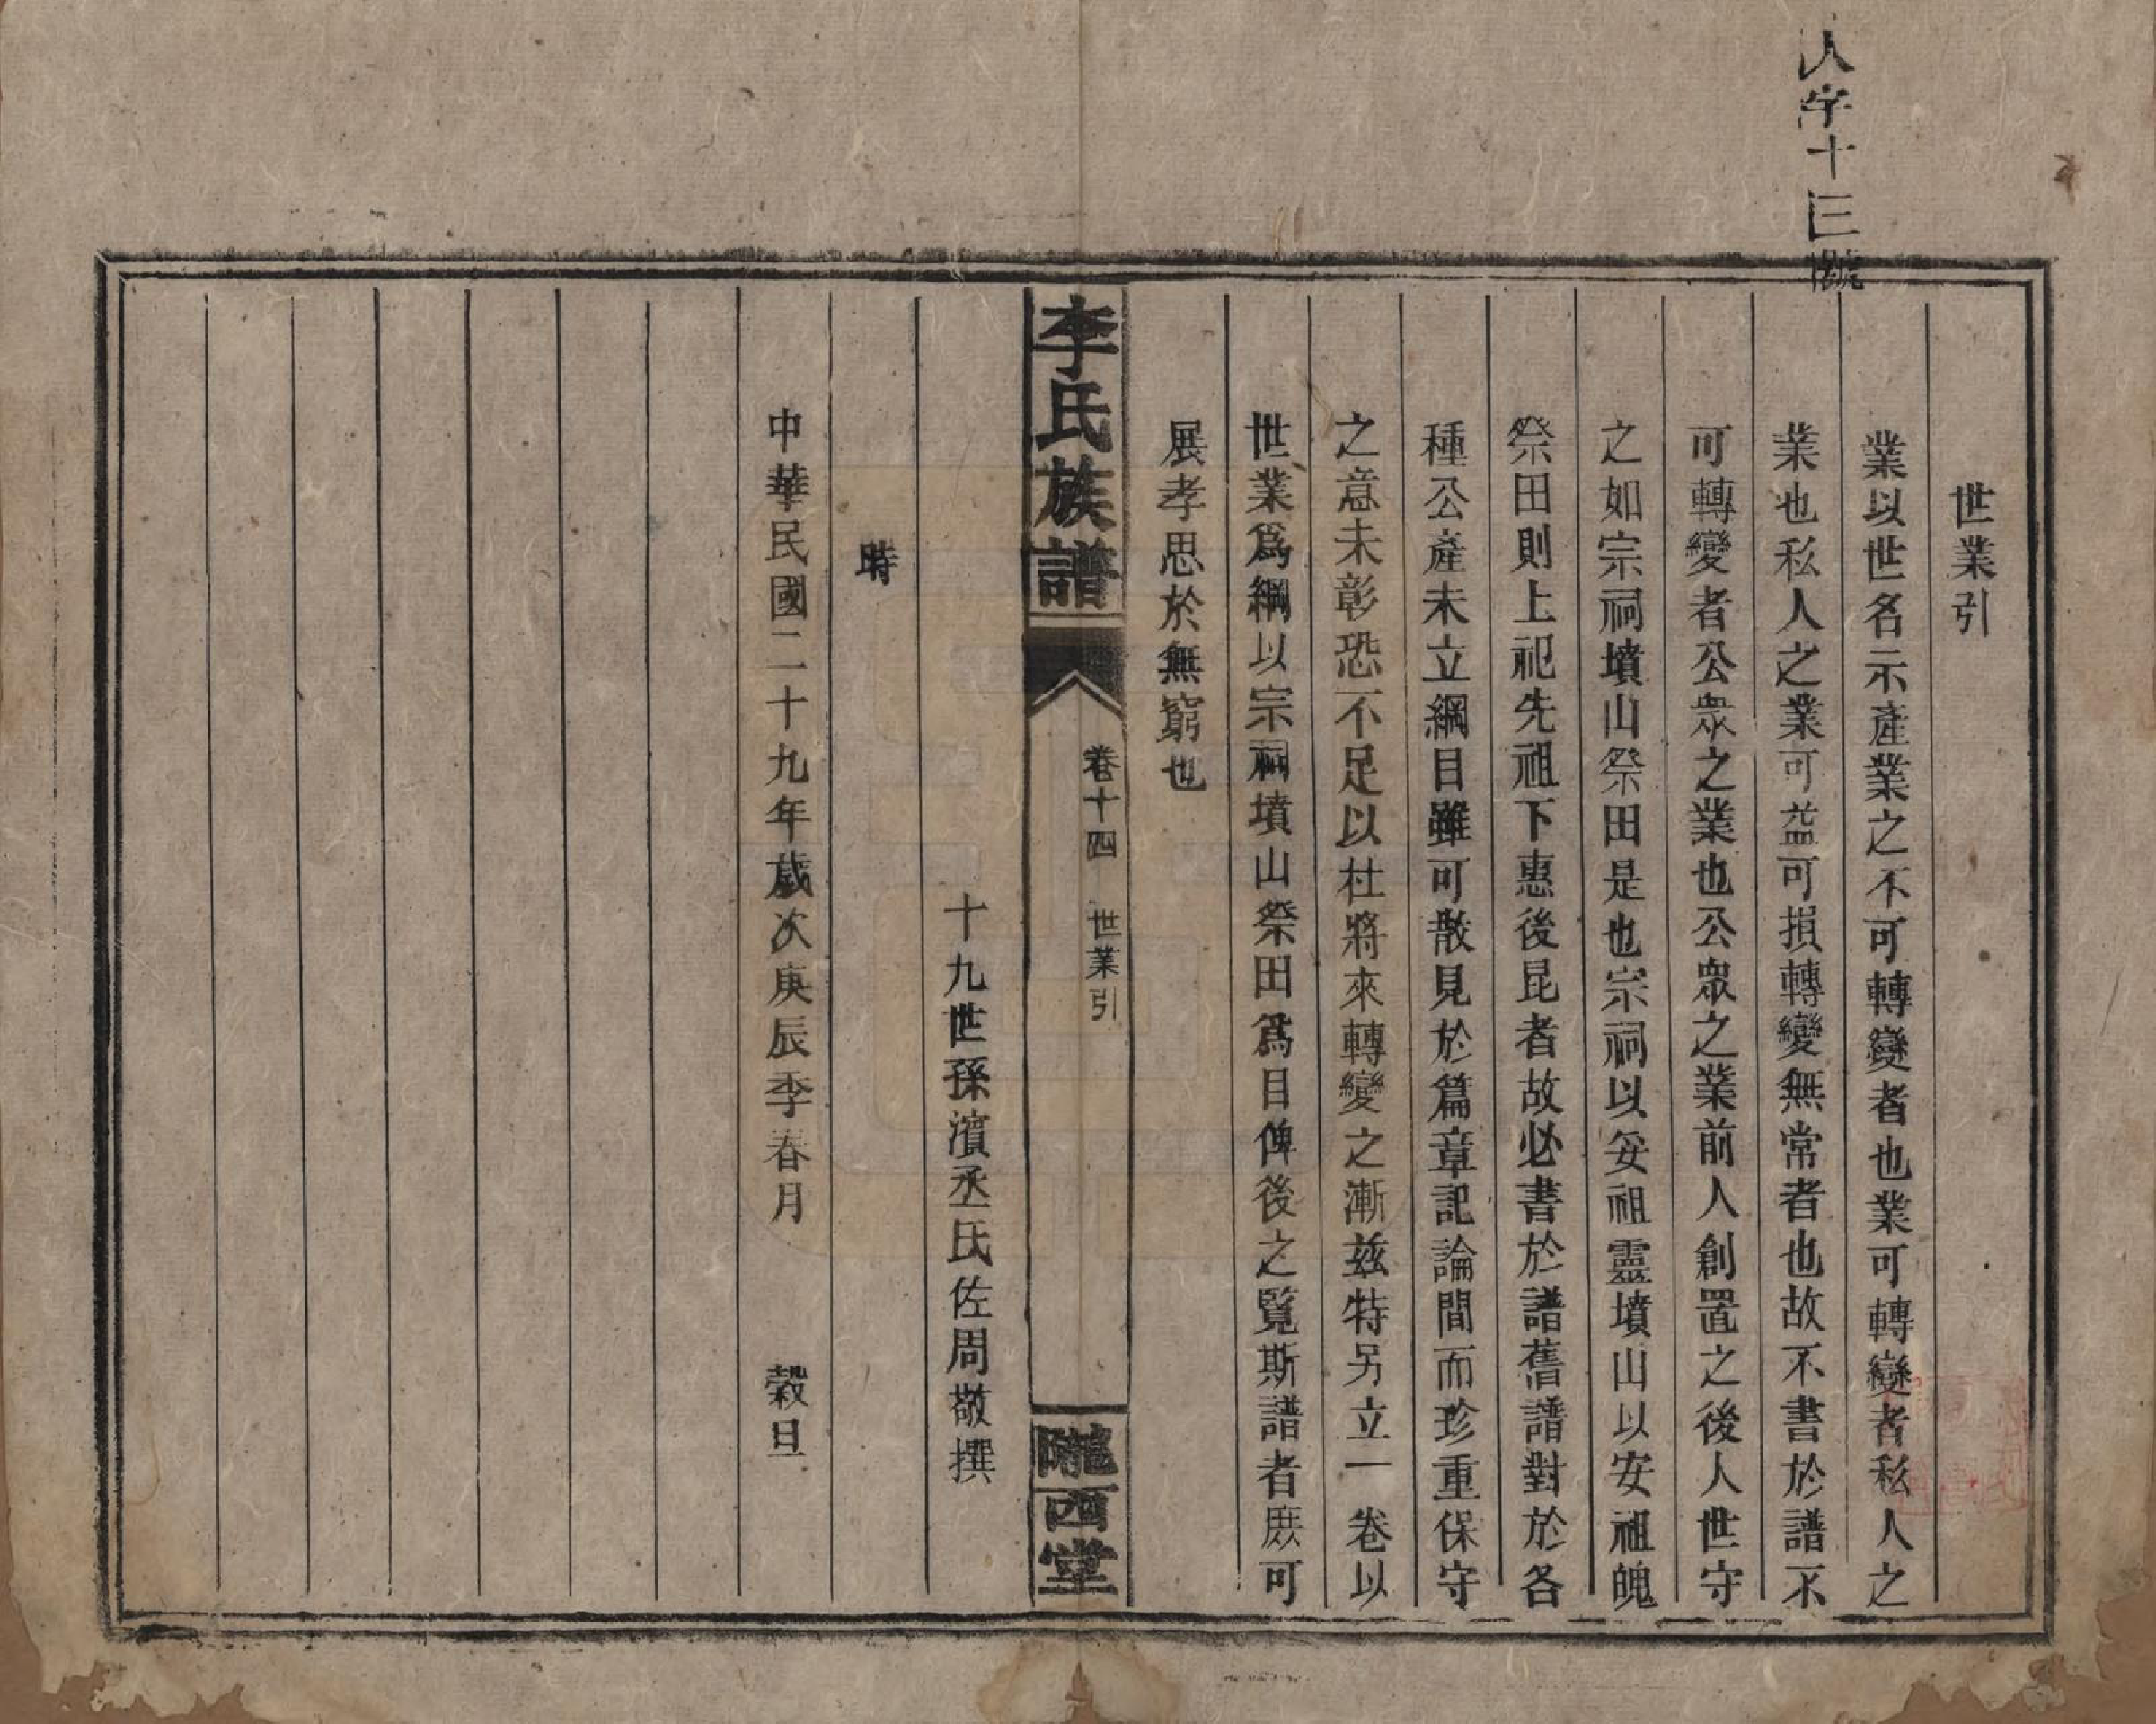 人字十三號
世業引
業以世名示產業之不可轉變者也業可轉變者私人之
業也私人之業可益可損轉變無常者也故不書於譜不
可轉變者公眾之業也公眾之業前人創置之後人世守
之如宗祠墳山祭田是也宗祠以妥祖靈墳山以安祖魄
祭田則上祀先祖下惠後昆者故必書於譜舊譜對於各
種公產未立綱目雖可散見於篇章記論間而珍重保守
之意未彰恐不足以杜將來轉變之漸茲特另立一卷以
世業爲綱以宗祠墳山祭田爲目俾後之覽斯譜者庶可
展孝思於無窮也
李氏族譜 卷十四 世業引 隴西堂
十九世孫濱丞氏佐周敬撰
時
中華民國二十九年歲次庚辰季春月 穀旦